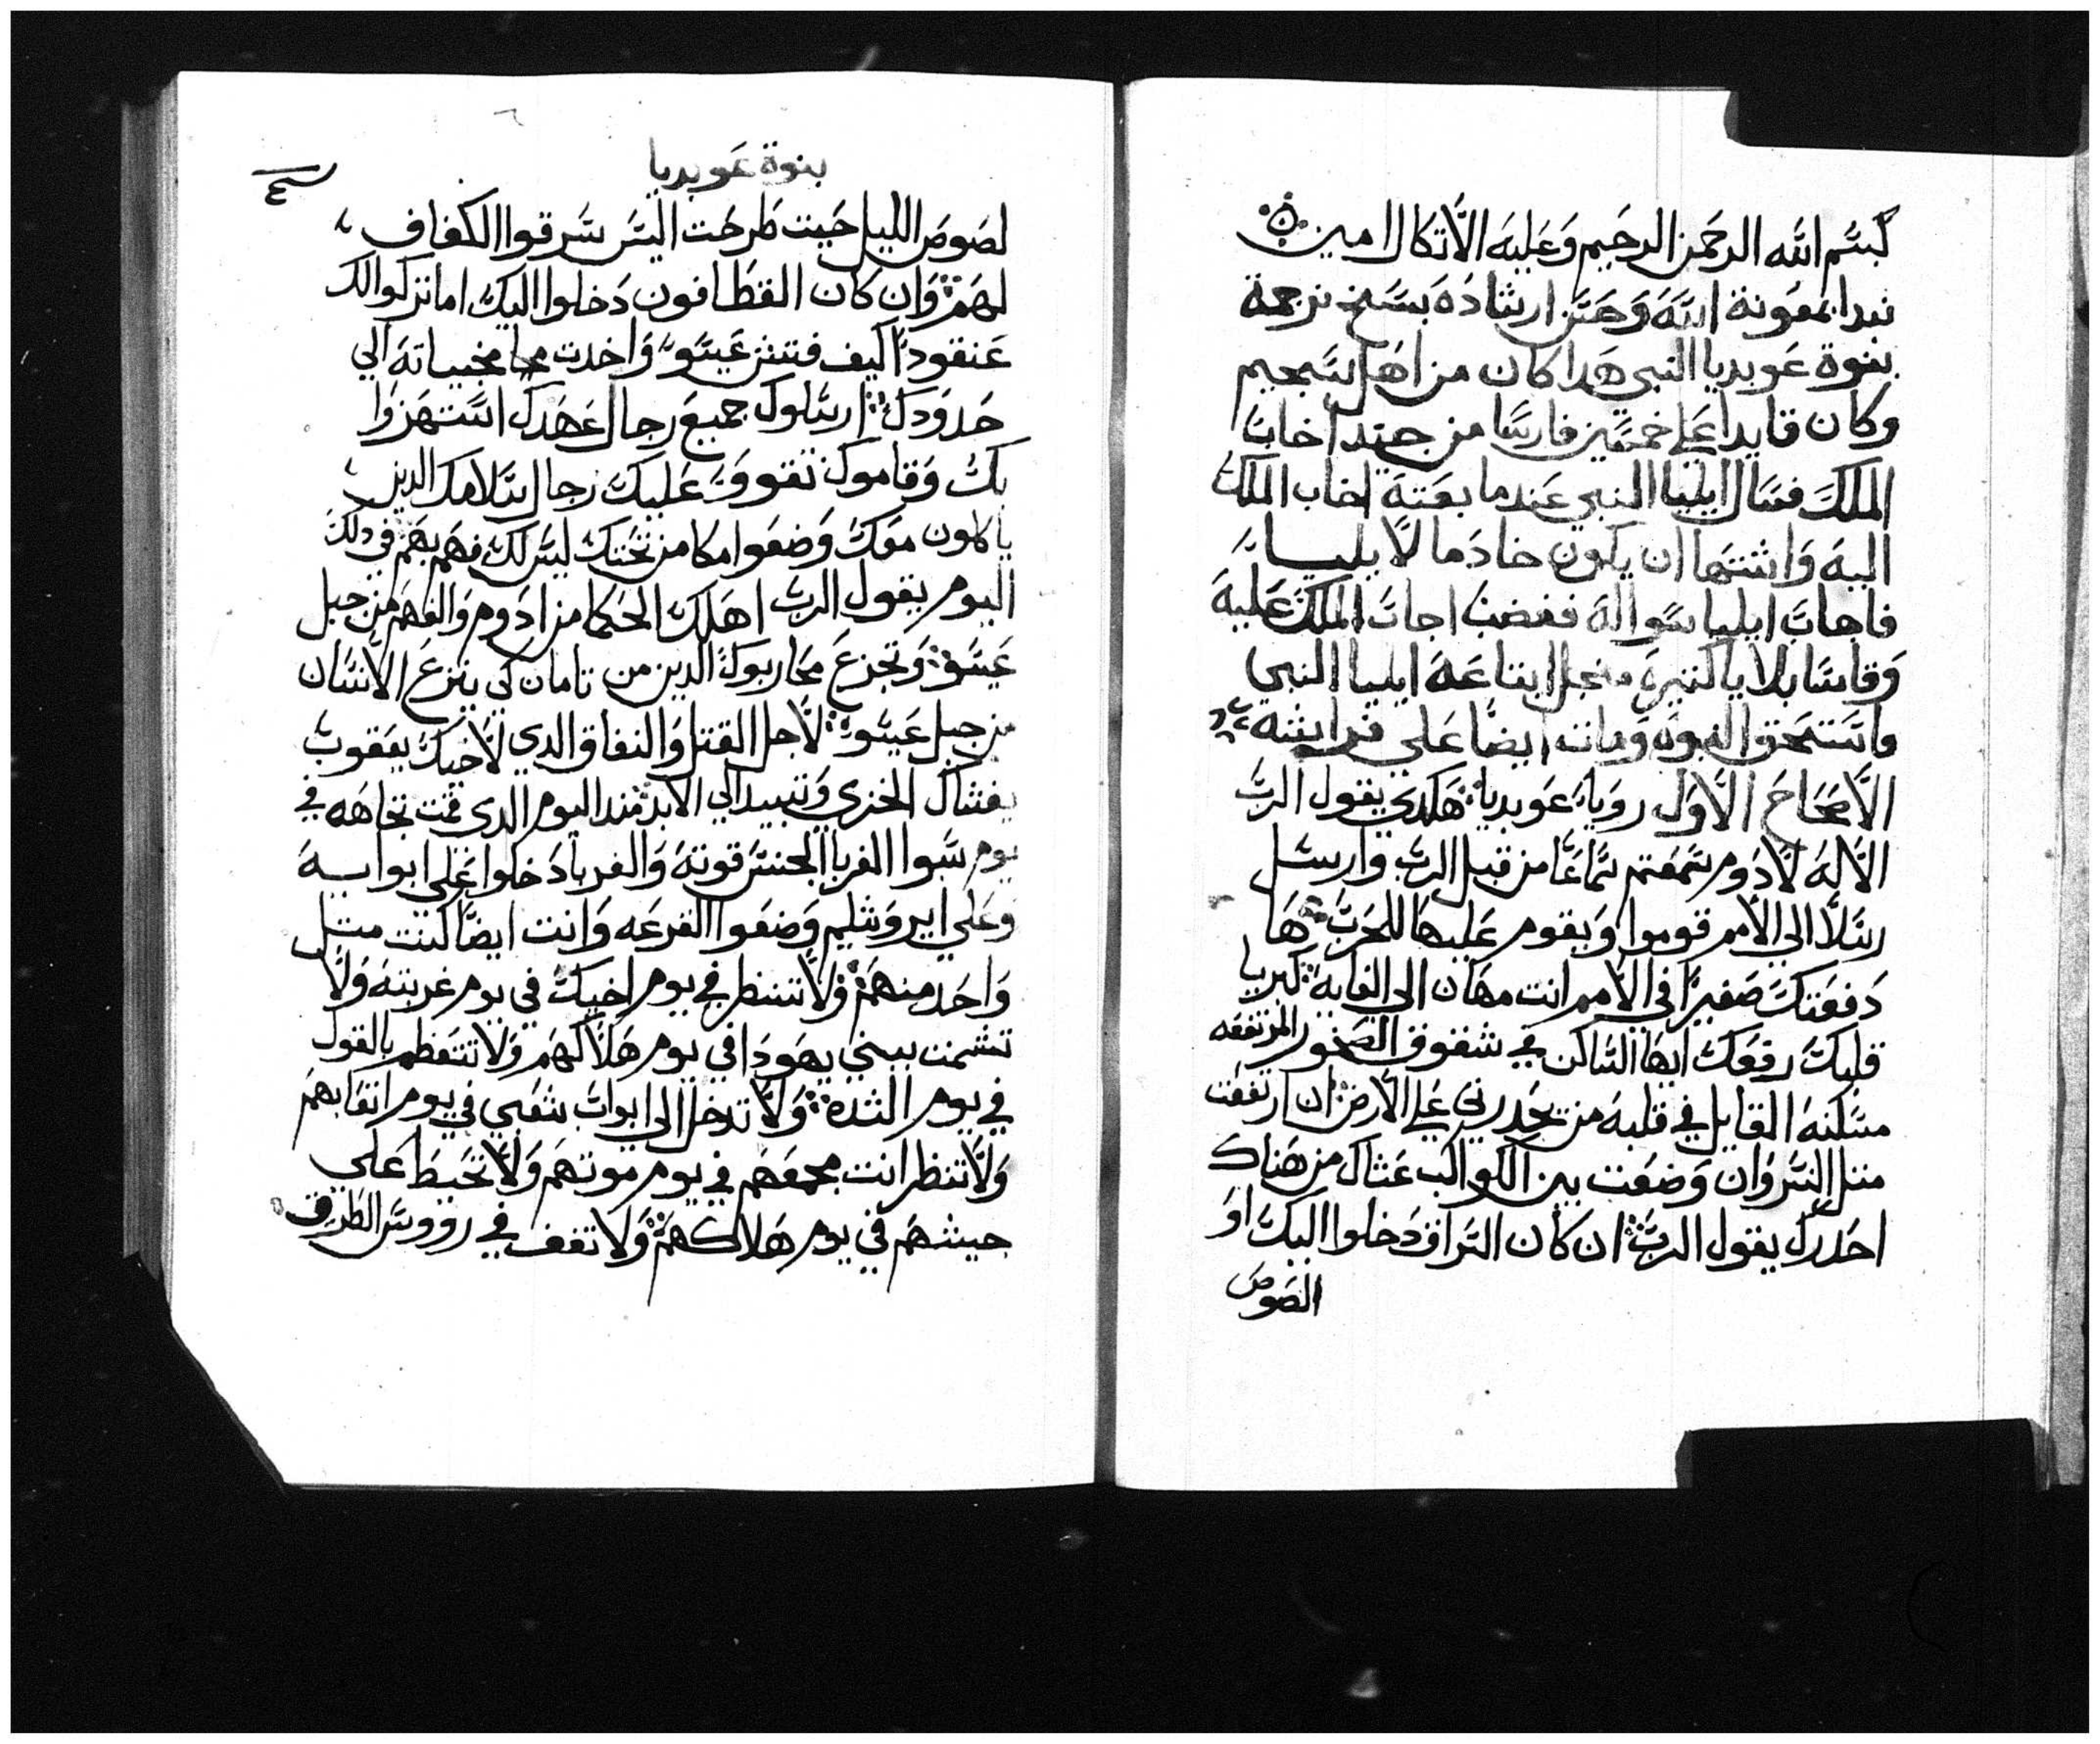 بسم الله الرحمن الرحيم وعليه الاتكال امين
نبدا بمعونة الله وحسن ارشاده بنسخ ترجمة
بنوة عوبديا النبي هدا كان من اهل سجيم
وكان قايدا علي خمسين فارسا من جند اخاب
الملك فسال ايليا النبي عندما بعته اخاب الملك
اليه واشتها ان يكون خادما لايليا
فاجاب ايليا سواله فغضب اجاب الملك عليه
وقاسا بلايا كتيره من اجل اتباعه ايليا النبي
واستحق النبوه ومات ايضا علي فراشه
الاصحاح الاول رويا عوبديا هكدي يقول الرب
الاله لادوم سمعتم سماعا من قبل الرب وارسل
رسلا الي الامم قوموا ويقوم عليها للحرب ها
دفعتك صغيرا في الامم انت مهان الي الغايه كبريا
قلبك رفعك ايها الساكن في شقوق الصخور المرتفعه
مسكنه القايل في قلبه من يحدرني علي الارض ان ارتفعت
متل النسر وان وضعت بين الكواكب عشاك من هناك
احدرك يقول الرب ان كان السراق دخلوا اليك او
الصوص
بنوة عوبديا
لصوص الليل حيت طرحت اليس سرقوا الكفاف
لهم وان كان القطافون دخلوا اليك اما تركوا لك
عنقودا كيف فتش عيسو واخدت مخبياته الي
حدودك ارسلوك جميع رجال عهدك استهزوا
بك وقاموك تقووا عليك رجال سلامك الدين
ياكلون معك وضعوا مكا من تحتك ليس لك فهم بهم في دلك
اليوم يقول الرب اهلك الحكما من ادوم والفهم من جبل
عيسو وتجزع محاربوك الدين من تامان لكي ينزع الانسان
من جبل عيسو لاجل القتل والنفاق الدي لاخيك يعقوب
يغشاك الخزي وتبيد الي الابد مند اليوم الدي قمت تجاهه في
يوم سبوا الغربا الجنس قوته والغربا دخلوا علي ابوابه
وعلي ايروشليم وضعوا القرعه وانت ايضا كنت متل
واحد منهم ولا تنظر في يوم اخيك في يوم غربته ولا
تشمت ببني يهودا في يوم هلاكهم ولا تتعظم بالقول
في يوم الشده ولا تدخل الي ابواب شعبي في يوم اتعابهم
ولا تنظر انت مجمعهم في يوم موتهم ولا تحيط علي
جيشهم في يوم هلاكهم ولا تقف في رووس الطرق